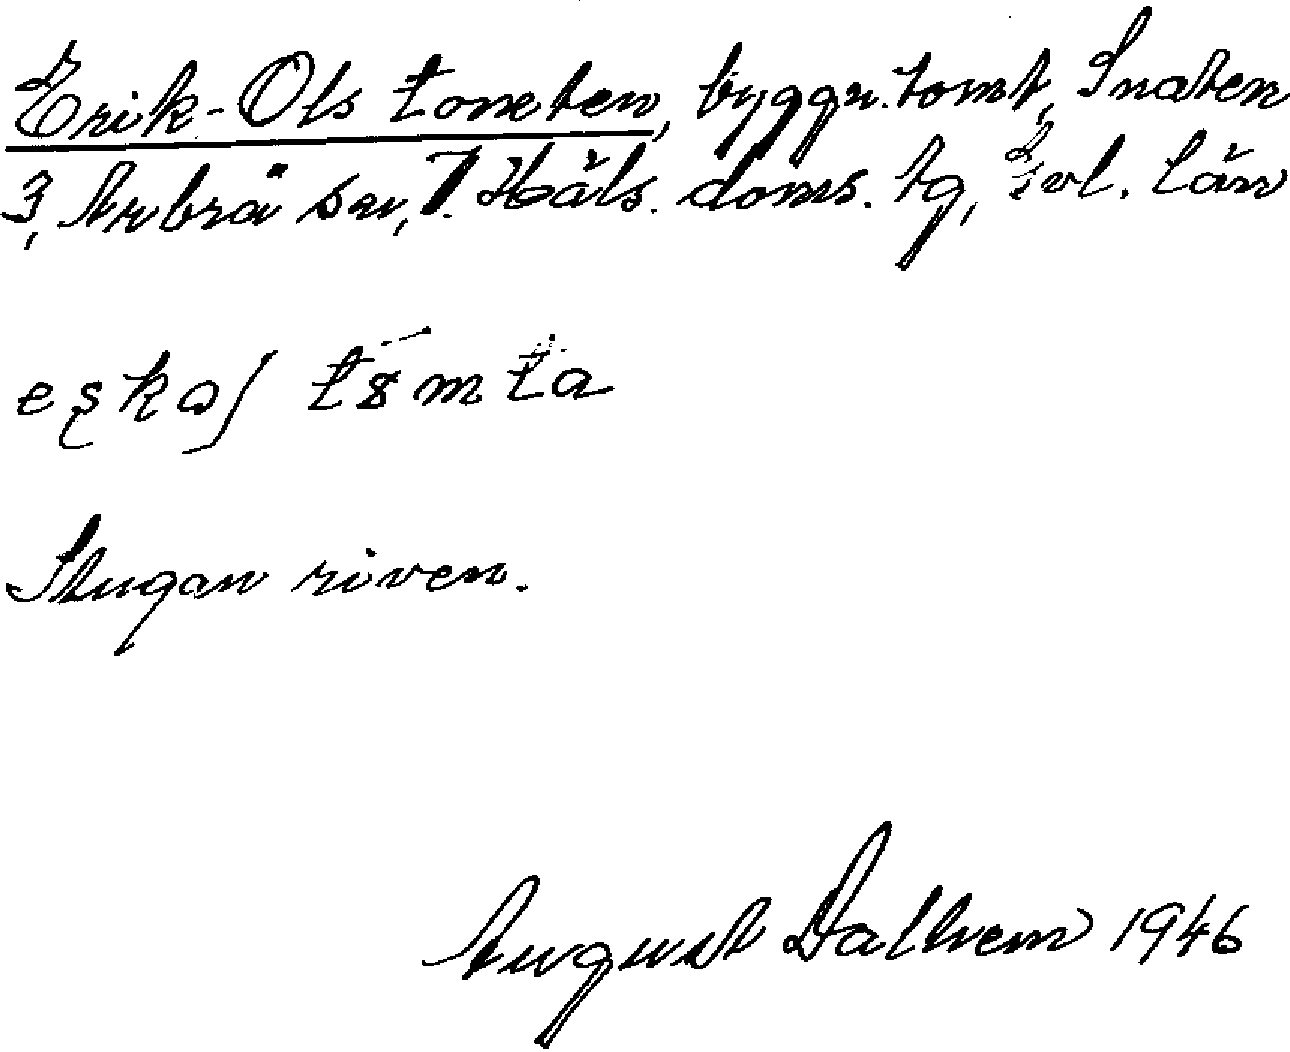 Erik-Ols tomten, byggn. tomt, Snaten
3, Arbrå sn, V. Häls. doms. tg, Gvl. län
Stugan riven.
August Dalhem 1946